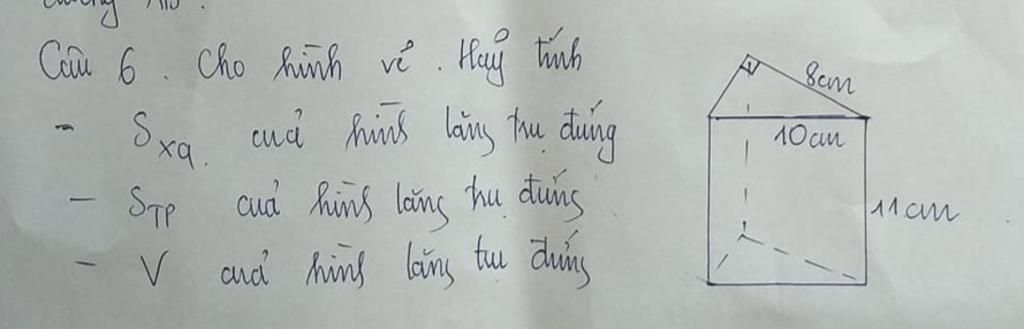 Câu 6. Cho hình vẽ. Hãy tính
- Sxq. của hình lăng trụ đứng
- STP của hình lăng trụ đứng
- V của hình lăng trụ đứng
8cm
10cm
11cm